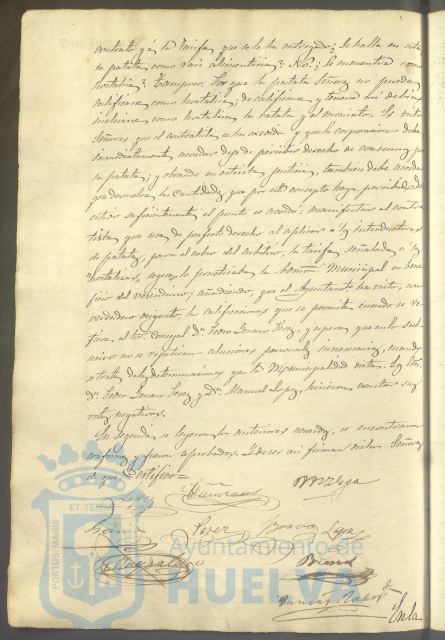 contrato y á la tarifa que se le ha entregado; Se halla en esta
la patata como raiz alimenticia? No; Se encuentra como
hortaliza? Tampoco. Porque la patata Señores no puede
calificarse como hortaliza; de calificarse y tenerse asi debian
incluirse como hortaliza la batata y el moniato. Es visto
Señores que el contratista se ha excedido y que la corporacion debe
inmediatamente acordar deje de percibir derecho de consumos por
la patata; y obrando en estricta justicia, tambien debe acordar
que devuelva las cantidades que por este concepto haya percibido.
suficientemente el punto se acordó: manifestar al contra-
tista que usa de perfecto derecho al aplicar á los introductores
de patatas, para el cobro del arbitrio, la tarifa señalada á las
hortalizas, segun lo practicaba la Administracion Municipal en bene-
ficio del vecindario; añadiendo, que el Ayuntamiento ha visto, con
verdadero disgusto, las calificaciones que se permite cuando se re-
fiere, al Sor. concejal Dn. Pedro Perez, y espera que en lo suce-
sivo no se repetiran alusiones personales innecesarias, cuando
se trata de las determinaciones que la Municipalidad dicta. Los Sres.
Dn. Pedro Perez y Dn. Manuel Lopez, hicieron constar sus
votos negativos.
En seguida, se leyeron los anteriores acuerdos, se encontraron
conformes y fueron aprobados. Y dices asi firman dichos Señores
de que Certifico=
Lopez
Garcia
Perez
Bravo
Lopez
PORTUS MARIS
ET TERRÆ
Ayuntamiento de
HUELVA